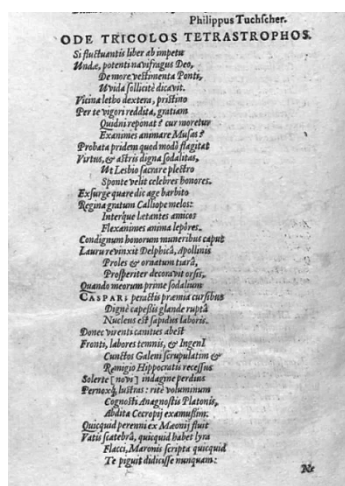 Philippus Tuchscher.
ODE TRICOLOS TETRASTROPHOS.
Si fluctuantis liber ab impetu
Undæ, potenti navifragus Deo,
De more vestimenta Ponti,
Uvida sollicitè dicavit.
Vicina letho dextera, pristino
Per te vigori reddita, gratiam
Quidni reponat? cur moretur
Exanimes animare Musas?
Probata pridem quod modò flagitat
Virtus, & astris digna sodalitas,
Ut Lesbio sacrare plectro
Sponte velit celebres honores.
Exsurge quare dic age barbito
Regina gratum Calliope melos:
Interque lætantes amicos
Flexanimes anima lepôres.
Condignum honorum muneribus caput
Lauru revinxit Delphicâ, Apollinis
Proles & ornatum tiarâ,
Prosperiter decoravit orsis,
Quando meorum prime sodalium
CASPARI peractis præmia cursibus
Dignè capessis glande ruptâ
Nucleus est sapidus laboris.
Donec virenti canities abest
Fronti, labores temnis, & IngenI
Cunctos Galeni scrupulatim &
Remigio Hippocratis recessus
Solerte [novi] indagine perdius
Pernoxq; lustras: rite voluminum
Cognosti Anagnostis Platonis,
Abdita Cecropij examussim:
Quicquid perenni ex Mæonij fluit
Vatis scatebrâ, quicquid habet lyra
Flacci, Maronis scripta quicquid
Te piguit didicisse nunquam: